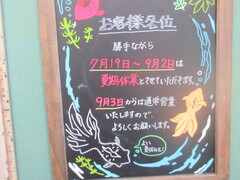 お客様各位
勝手ながら
7月19日〜9月2日は
夏期休業とさせていただきます。
9月3日からは通常営業
いたしますので
よろしくお願いします。
よい
夏休みを!